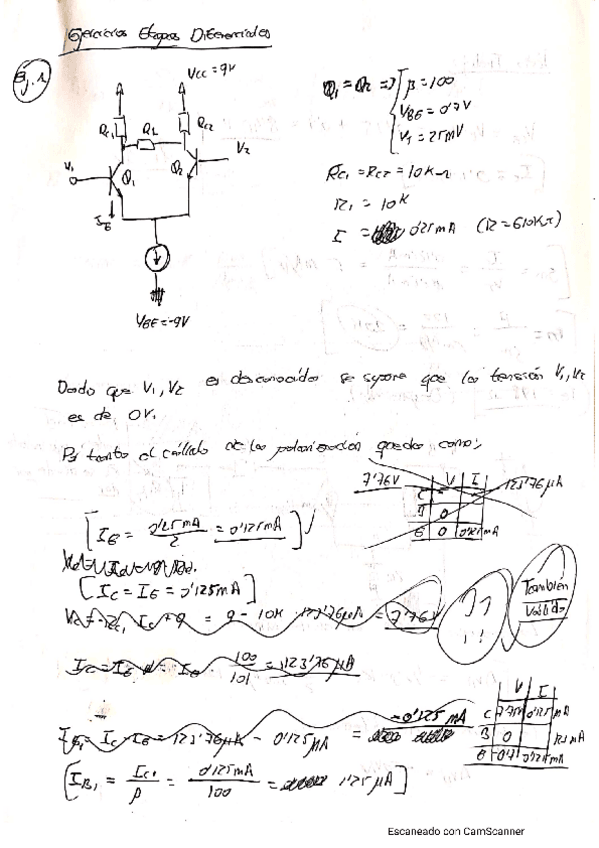 Ejercicios Etapas Diferenciales
Ej. 1
Vcc = 9V
Rc1 R1 Rc2
V1 Q1 Q2 V2
IE
VEE = -9V
Q1 = Q2 => β = 100
VBE = 0'7V
VT = 25mV
RC1 = RC2 = 10K
R1 = 10K
I = 0'25 mA (R = 610K)
Dado que V1, V2 es desconocida se supone que la tensión V1, V2
es de 0V.
Por tanto el cálculo de la polarización queda como:
7'76V V I 123'76 μA
C
B 0
E 0 0'125 mA
[IE = 0'25 mA / 2 = 0'125 mA]
[IC = IE = 0'125 mA]
IC + 9 = 9 - 10K · 123'76 μA = 7'76V
También
válido
IC = IE · 100/101 = 123'76 μA
= 0'125 mA
IC IE = 123'76 μA - 0'125 μA =
[IB1 = IC1/β = 0'125 mA/100 = 1'25 μA]
V I
C 7'75V 0'125 mA
B 0 1'25 μA
E -0'7 0'125 mA
Escaneado con CamScanner